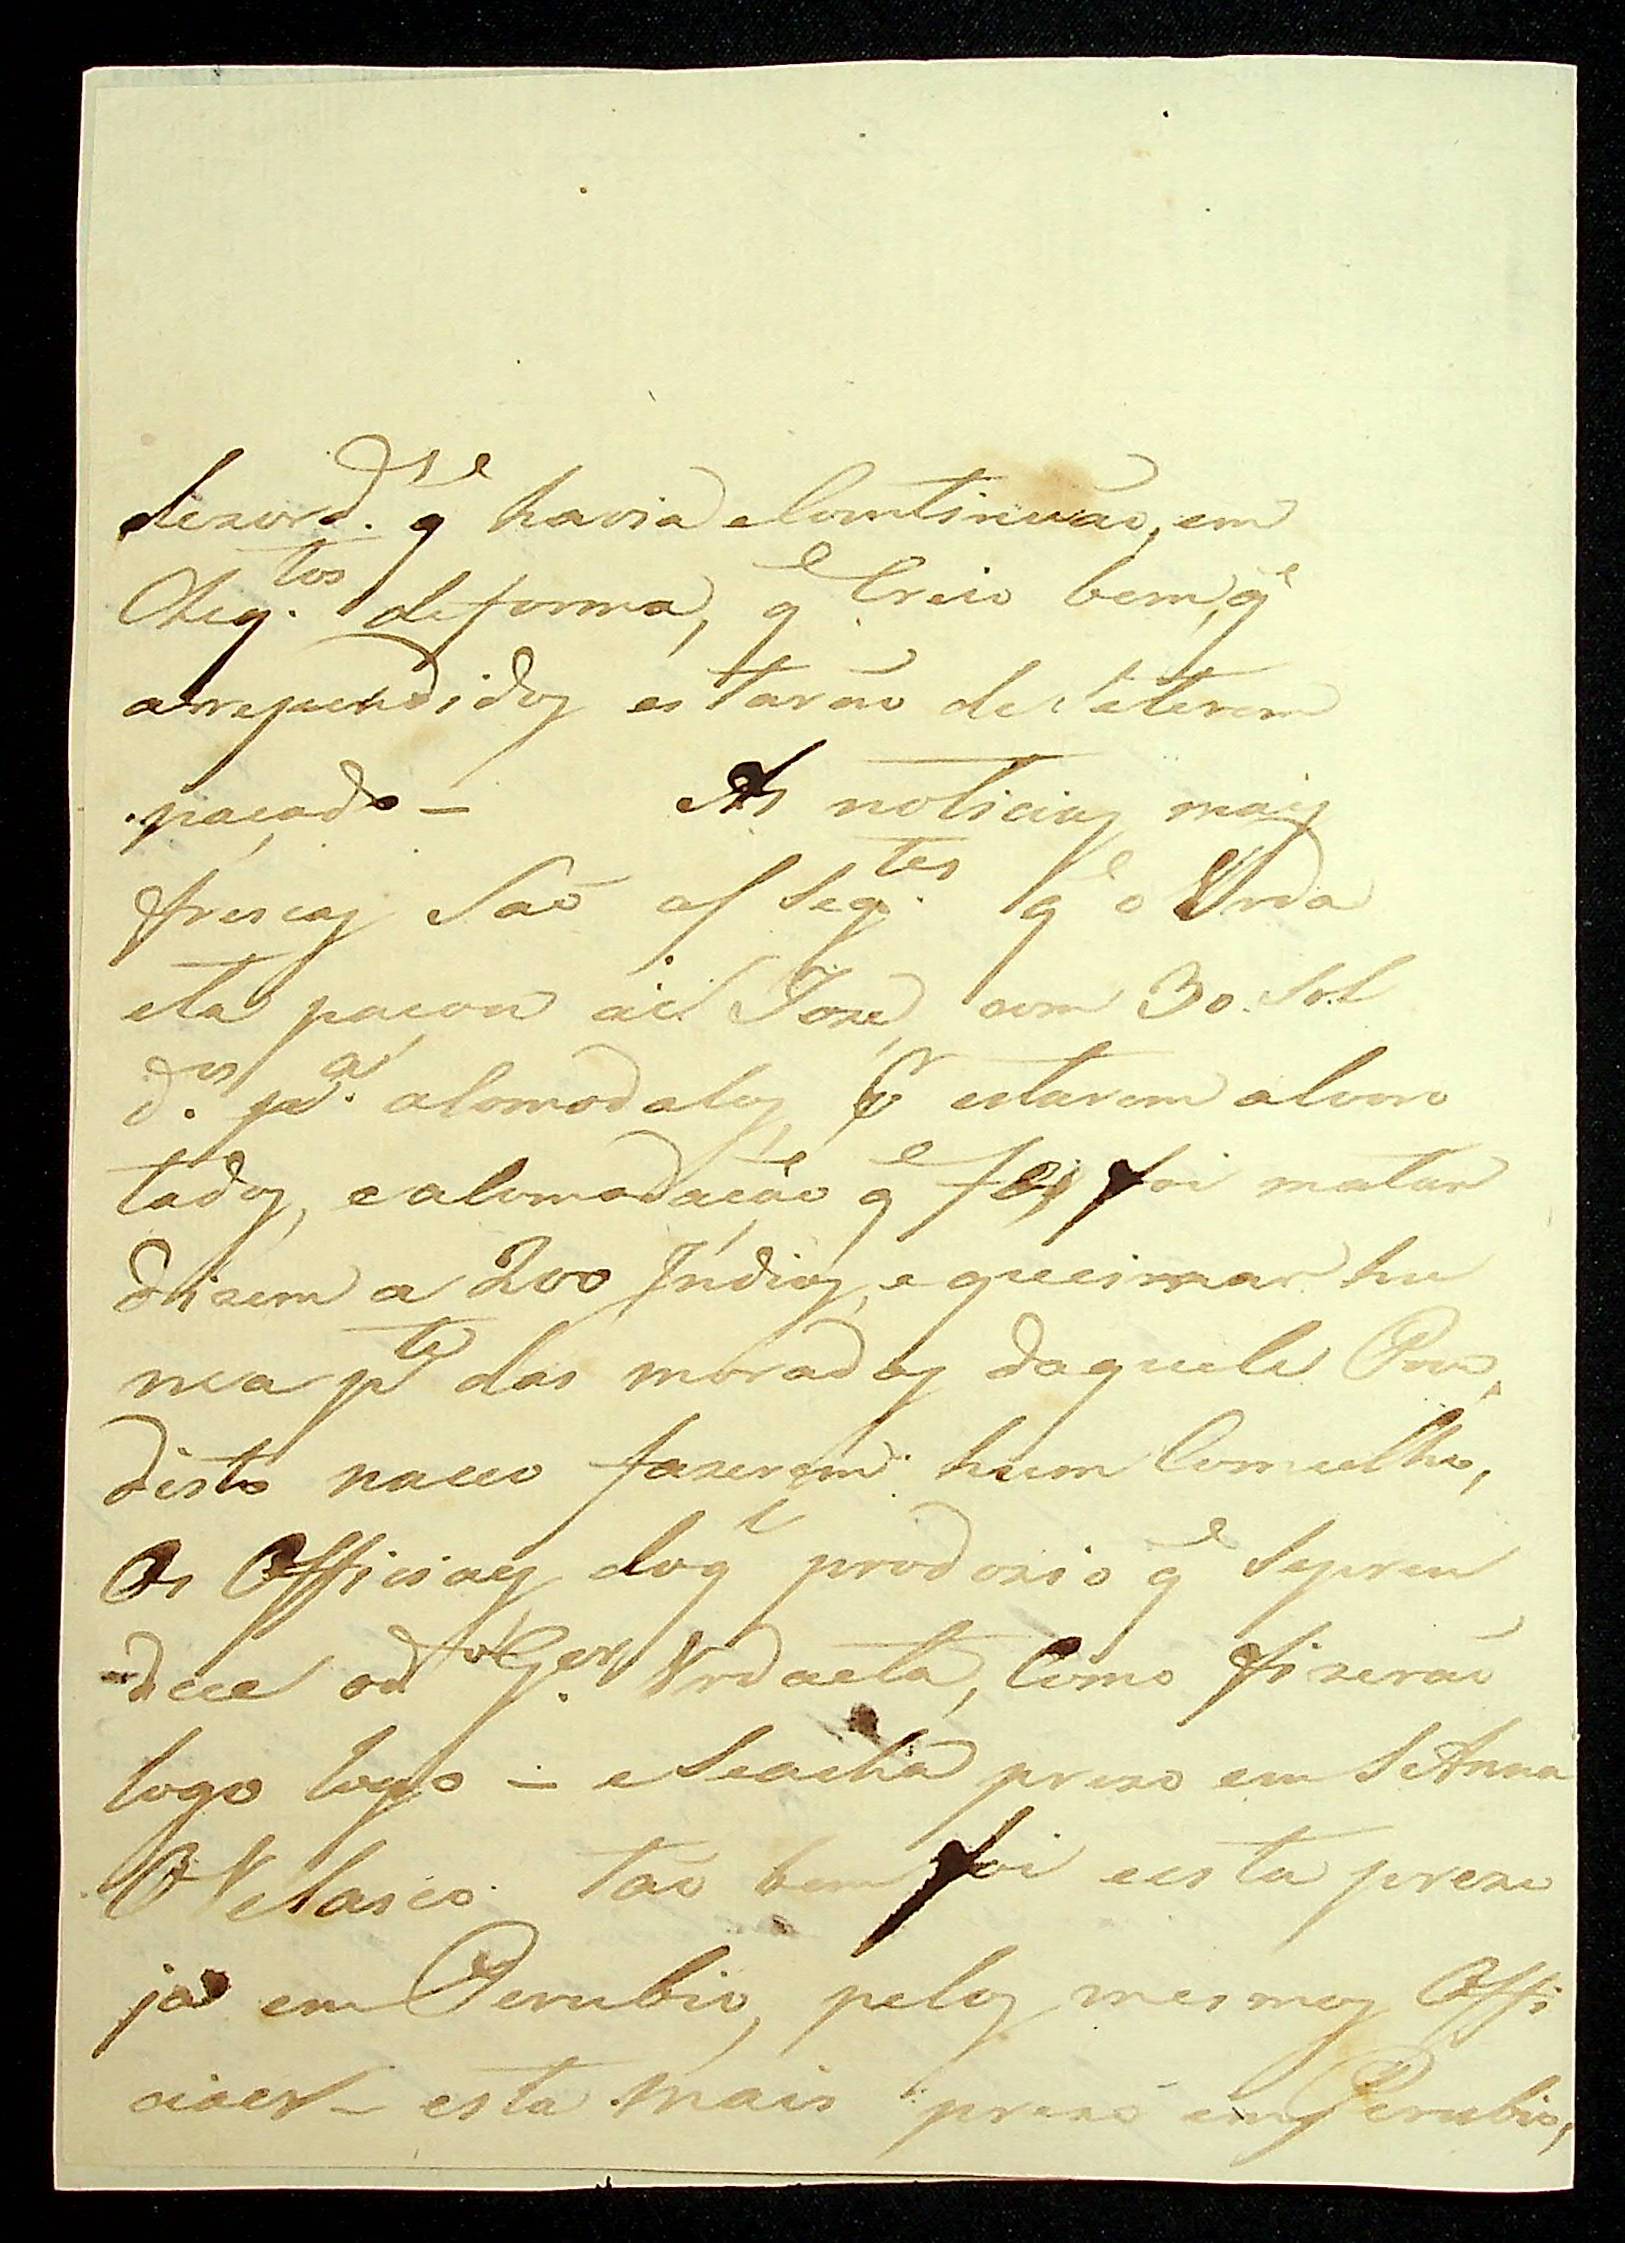 dezord. q̃ havia eComtinuão, em
Chiq.tos deforma, q̃ Creio bem, q̃
arrependidos estarão de seterem
paçado – As noticias mais
frescas Saõ as Seg.tes q̃ o Urda
eta paçou a S. Joze, com 30 Sol
d.os p.a acomodalos, p.r estarem alvoro
tados, e acomodação q̃ fes foi matar
dizem a 200 Indios, e queimar hu
ma p.te das moradas daquele Povo,
disto naceo fazerem hum Comcelho,
Os Officiaes do q̃ prodozio q̃ Sepren
dece od.o Gov.r Urdaeta, Como fizeraõ
logo logo – eSeacha prezo em S. Anna
O Velasco. tão bem foi eesta prezo
já em Perubio, pelos mesmos Offi
ciaes – esta mais prezo em Perubio,